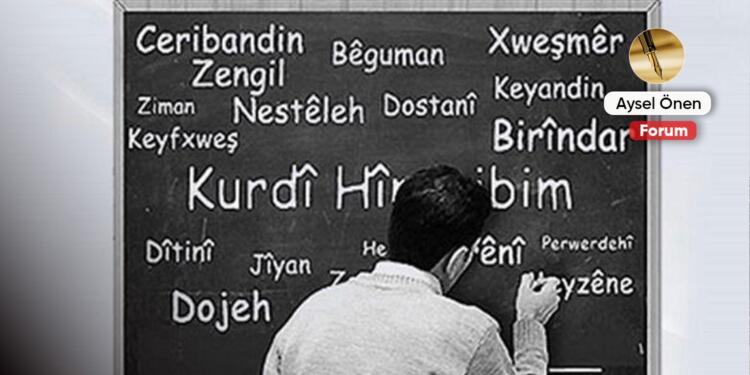 Ceribandin
Bêguman
Xweşmêr
Zengil
Keyandin
Ziman
Nestêleh
Dostanî
Keyfxweş
Birîndar
Kurdî
Dîtinî
Jîyan
Perwerdehî
Dojeh
Aysel Önen
Forum